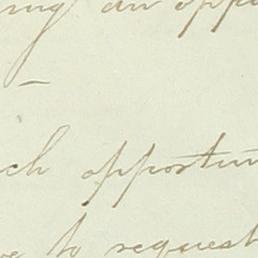 ing an oppo
ch opportun
ve to request